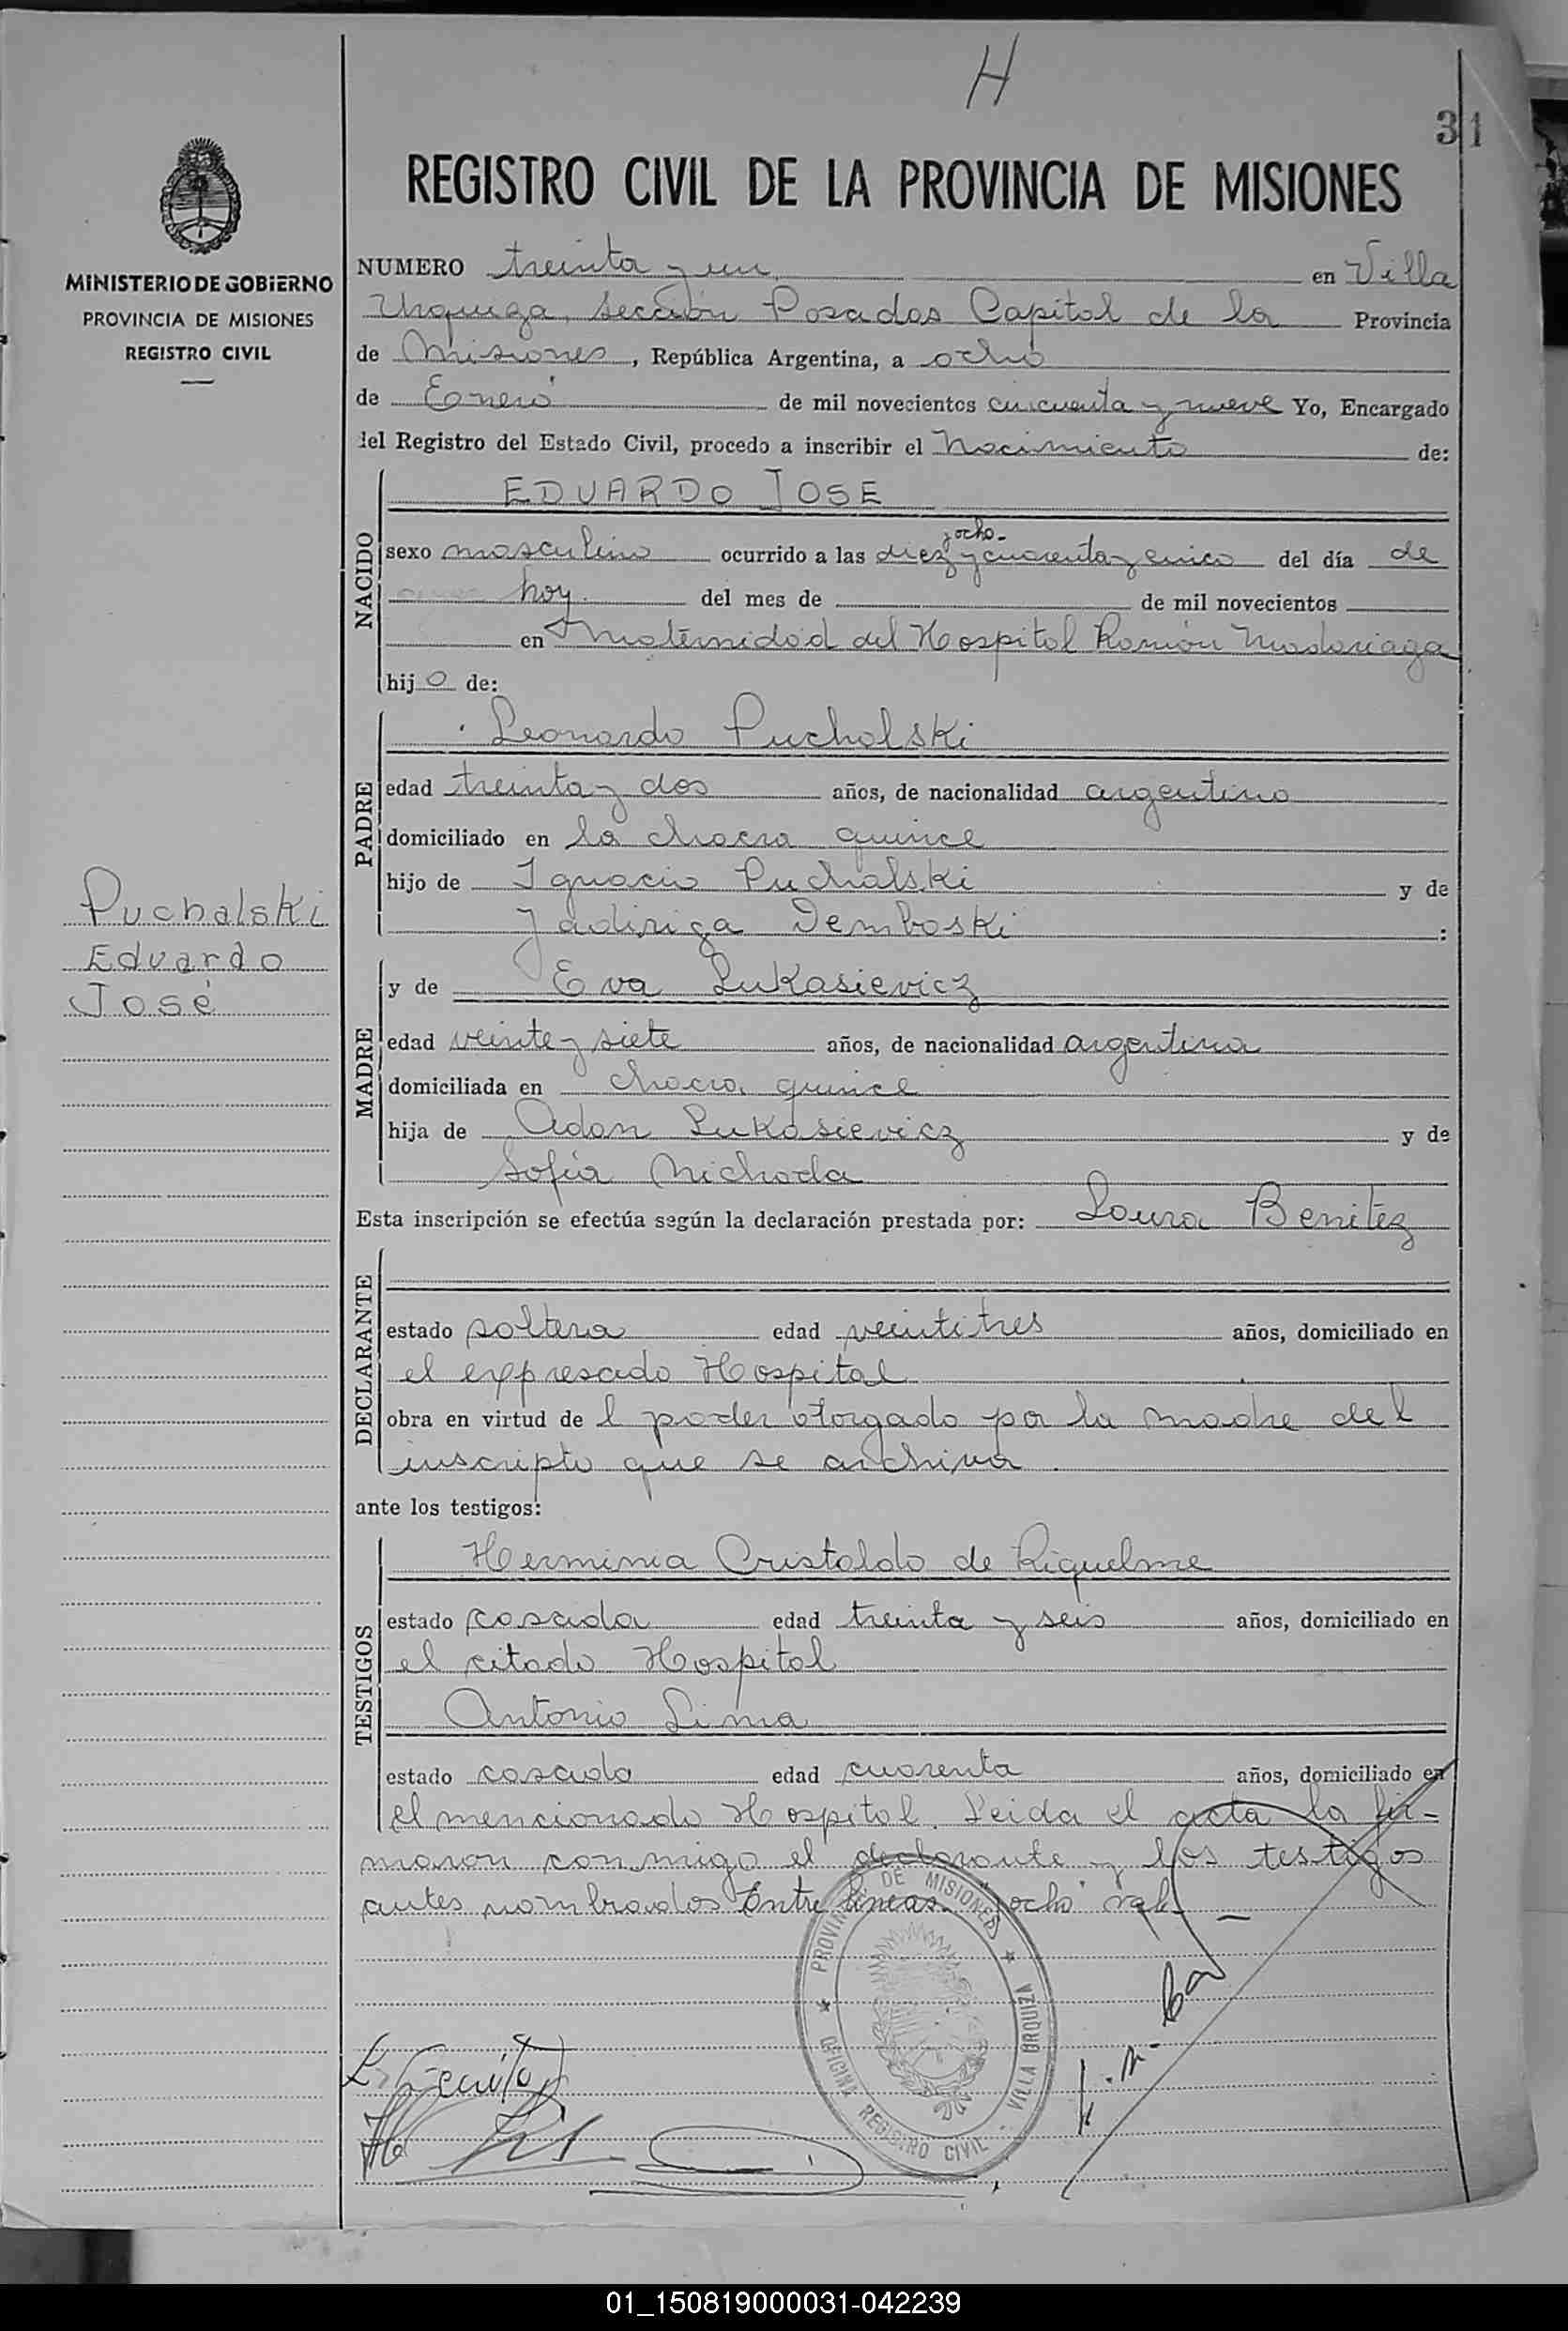 H
31
MINISTERIO DE GOBIERNO
PROVINCIA DE MISIONES
REGISTRO CIVIL
REGISTRO CIVIL DE LA PROVINCIA DE MISIONES
NUMERO treinta y un en Villa
Urquiza, sección Posadas Capital de la Provincia
de Misiones, República Argentina, a ocho
de Enero de mil novecientos cincuenta y nueve Yo, Encargado
del Registro del Estado Civil, procedo a inscribir el Nacimiento de:
NACIDO
EDUARDO JOSE
y ocho-
sexo masculino ocurrido a las diez y cuarenta y cinco del día de
hoy. del mes de de mil novecientos
en Maternidad del Hospital Ramón Madariaga
hijo de:
PADRE
Leonardo Puchalski
edad treinta y dos años, de nacionalidad argentino
domiciliado en la chacra quince
hijo de Ignacio Puchalski y de
Jadiriga Demboski :
Puchalski
Eduardo
José
MADRE
y de Eva Lukasievicz
edad veinte y siete años, de nacionalidad argentina
domiciliada en chacra quince
hija de Adan Lukasievicz y de
Sofía Michoda
Esta inscripción se efectúa según la declaración prestada por: Laura Benitez
DECLARANTE
estado soltera edad veintitres años, domiciliado en
el expresado Hospital
obra en virtud de l poder otorgado por la madre del
inscripto que se archiva.
ante los testigos:
TESTIGOS
Herminia Cristaldo de Riquelme
estado casada edad treinta y seis años, domiciliado en
el citado Hospital
Antonio Lima
estado casado edad cuarenta años, domiciliado en
el mencionado Hospital. Leida el acta la fir-
maron conmigo el declarante y los testigos
antes nombrados Entre lineas "y ocho" vale-
PROVINCIA DE MISIONES ★ VILLA URQUIZA - OFICINA REGISTRO CIVIL ★
01_150819000031-042239